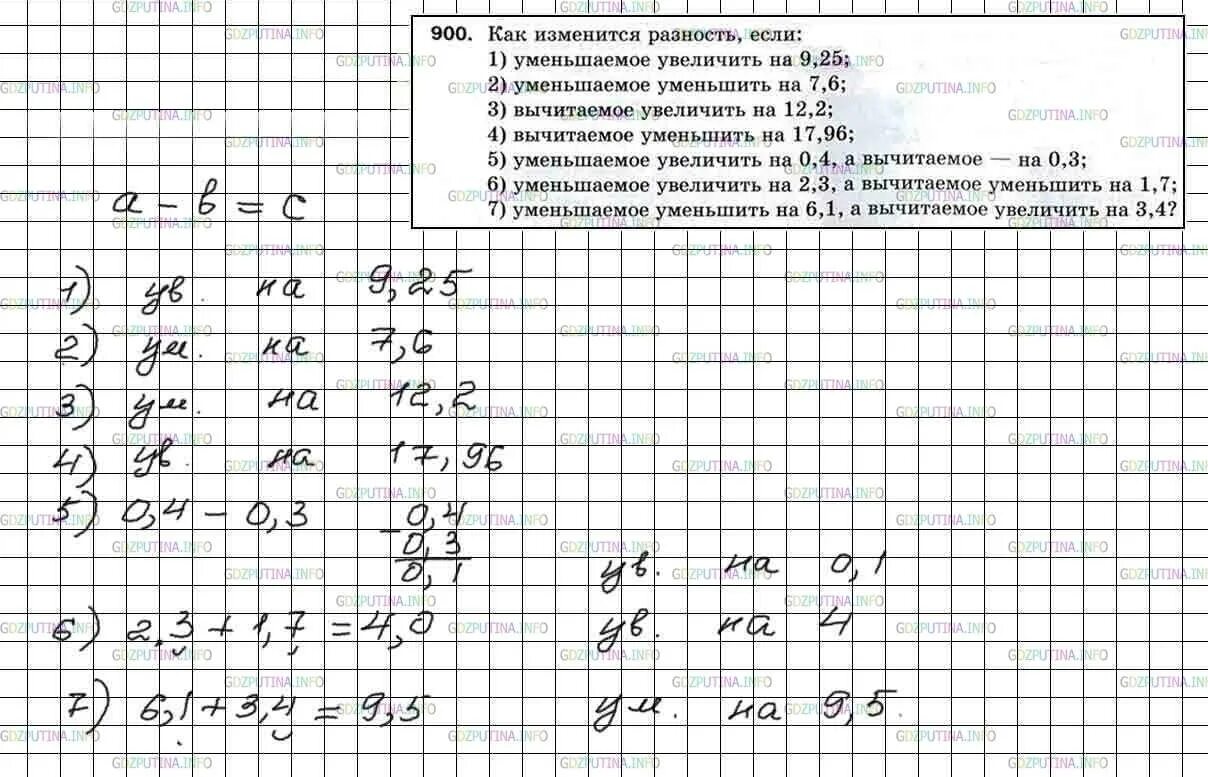 900. Как изменится разность, если:
1) уменьшаемое увеличить на 9,25;
2) уменьшаемое уменьшить на 7,6;
3) вычитаемое увеличить на 12,2;
4) вычитаемое уменьшить на 17,96;
5) уменьшаемое увеличить на 0,4, а вычитаемое — на 0,3;
6) уменьшаемое увеличить на 2,3, а вычитаемое уменьшить на 1,7;
7) уменьшаемое уменьшить на 6,1, а вычитаемое увеличить на 3,4?
a - b = c
1) ув. на 9,25
2) ум. на 7,6
3) ум. на 12,2
4) ув. на 17,96
5) 0,4 - 0,3
- 0,4
0,3
0,1
ув. на 0,1
6) 2,3 + 1,7 = 4,0 ув. на 4
7) 6,1 + 3,4 = 9,5 ум. на 9,5.
GDZPUTINA.INFO